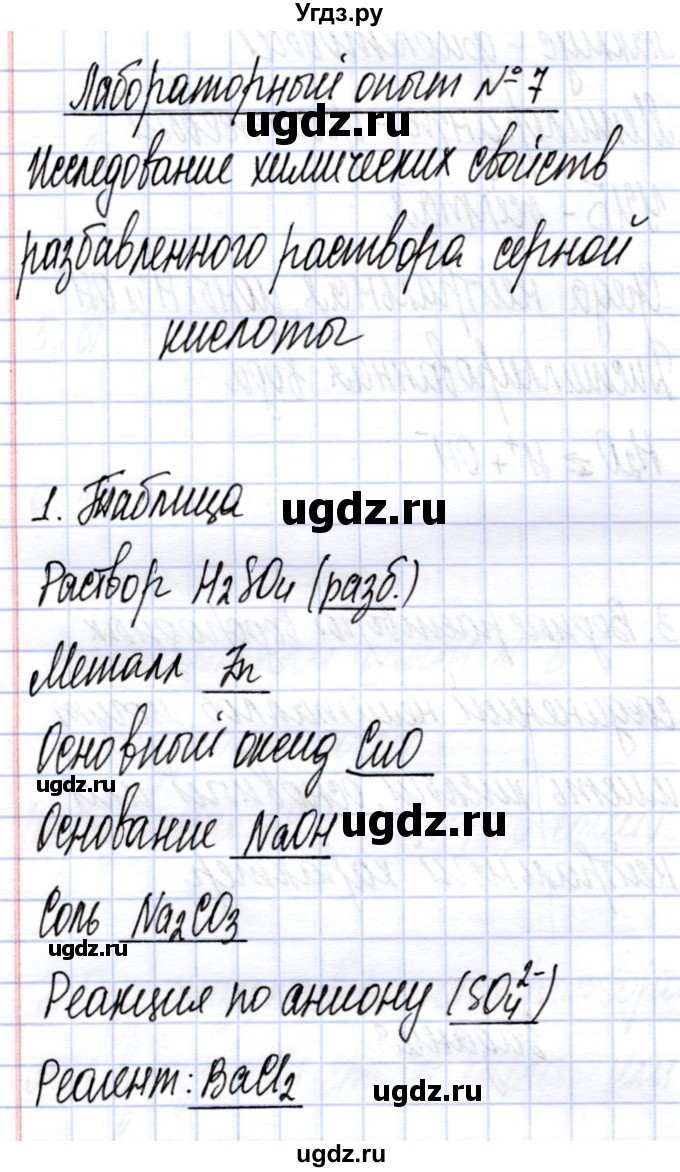 Угдз.ру
Лабораторный опыт № 7
ugdz.ru
Исследование химических свойств
разбавленного раствора серной
кислоты
1. Таблица
ugdz.ru
Раствор H₂SO₄ (разб.)
Металл Zn
Основный оксид CuO
ugdz.ru
Основание NaOH
ugdz.ru
Соль Na₂CO₃
ugdz.ru
Реакция по аниону (SO₄²⁻)
Реагент: BaCl₂
ugdz.ru